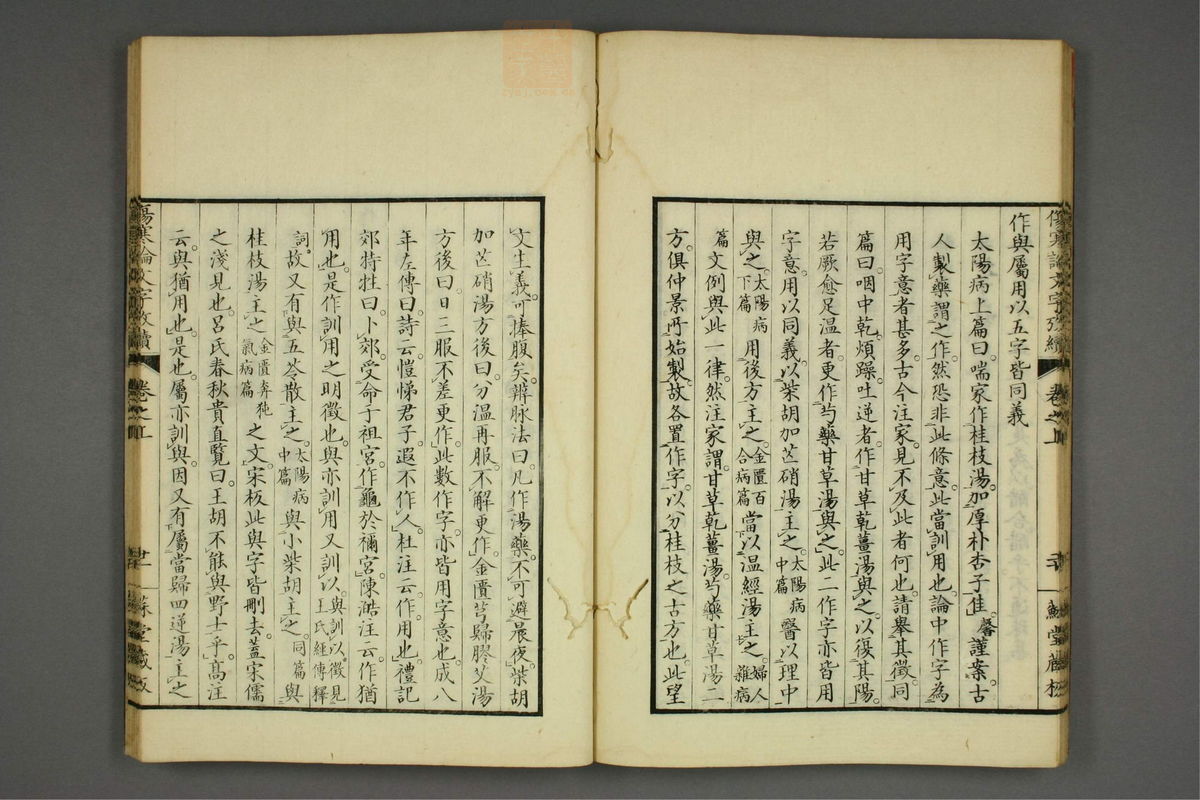 傷寒論文字攷續 卷之上
作與屬用以五字皆同義
太陽病上篇曰喘家作桂枝湯加厚朴杏子佳馨謹案古
人製藥謂之作然恐非此條意此當訓用也論中作字為
用字意者甚多古今注家見不及此者何也請舉其徵同
篇曰咽中乾煩躁吐逆者作甘草乾薑湯與之以復其陽
若厥愈足溫者更作芍藥甘草湯與之此二作字亦皆用
字意用以同義以柴胡加芒硝湯主之太陽病中篇醫以理中
與之太陽病下篇用後方主之金匱百合病篇當以溫經湯主之婦人雜病
篇文例與此一律然注家謂甘草乾薑湯芍藥甘草湯二
方俱仲景所始製故各置作字以分桂枝之古方也此望
文生義可捧腹矣辨脉法曰凡作湯藥不可避晨夜柴胡
加芒硝湯方後曰分溫再服不解更作金匱芎歸膠艾湯
方後曰日三服不差更作此數作字亦皆用字意也成八
年左傳曰詩云愷悌君子遐不作人杜注云作用也禮記
郊特牲曰卜郊受命于祖宮作龜於禰宮陳澔注云作猶
用也是作訓用之明徵也與亦訓用又訓以與訓以徵見王氏經傳釋
詞故又有與五苓散主之太陽病中篇與小柴胡主之同篇與
桂枝湯主之金匱奔㹠氣病篇之文宋板此與字皆刪去蓋宋儒
之淺見也呂氏春秋貴直覽曰王胡不能與野士乎高注
云與猶用也是也屬亦訓與因又有屬當歸四逆湯主之
傷寒論文字攷續 卷之上